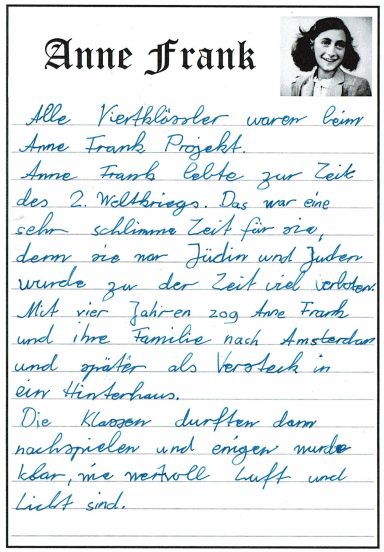 Anne Frank
Alle Viertklässler waren beim
Anne Frank Projekt.
Anne Frank lebte zur Zeit
des 2. Weltkriegs. Das war eine
sehr schlimme Zeit für sie,
denn sie war Jüdin und Juden
wurde zu der Zeit viel verboten.
Mit vier Jahren zog Anne Frank
und ihre Familie nach Amsterdam
und später als Versteck in
ein Hinterhaus.
Die Klassen durften dann
nachspielen und einigen wurde
klar, wie wertvoll Luft und
Licht sind.